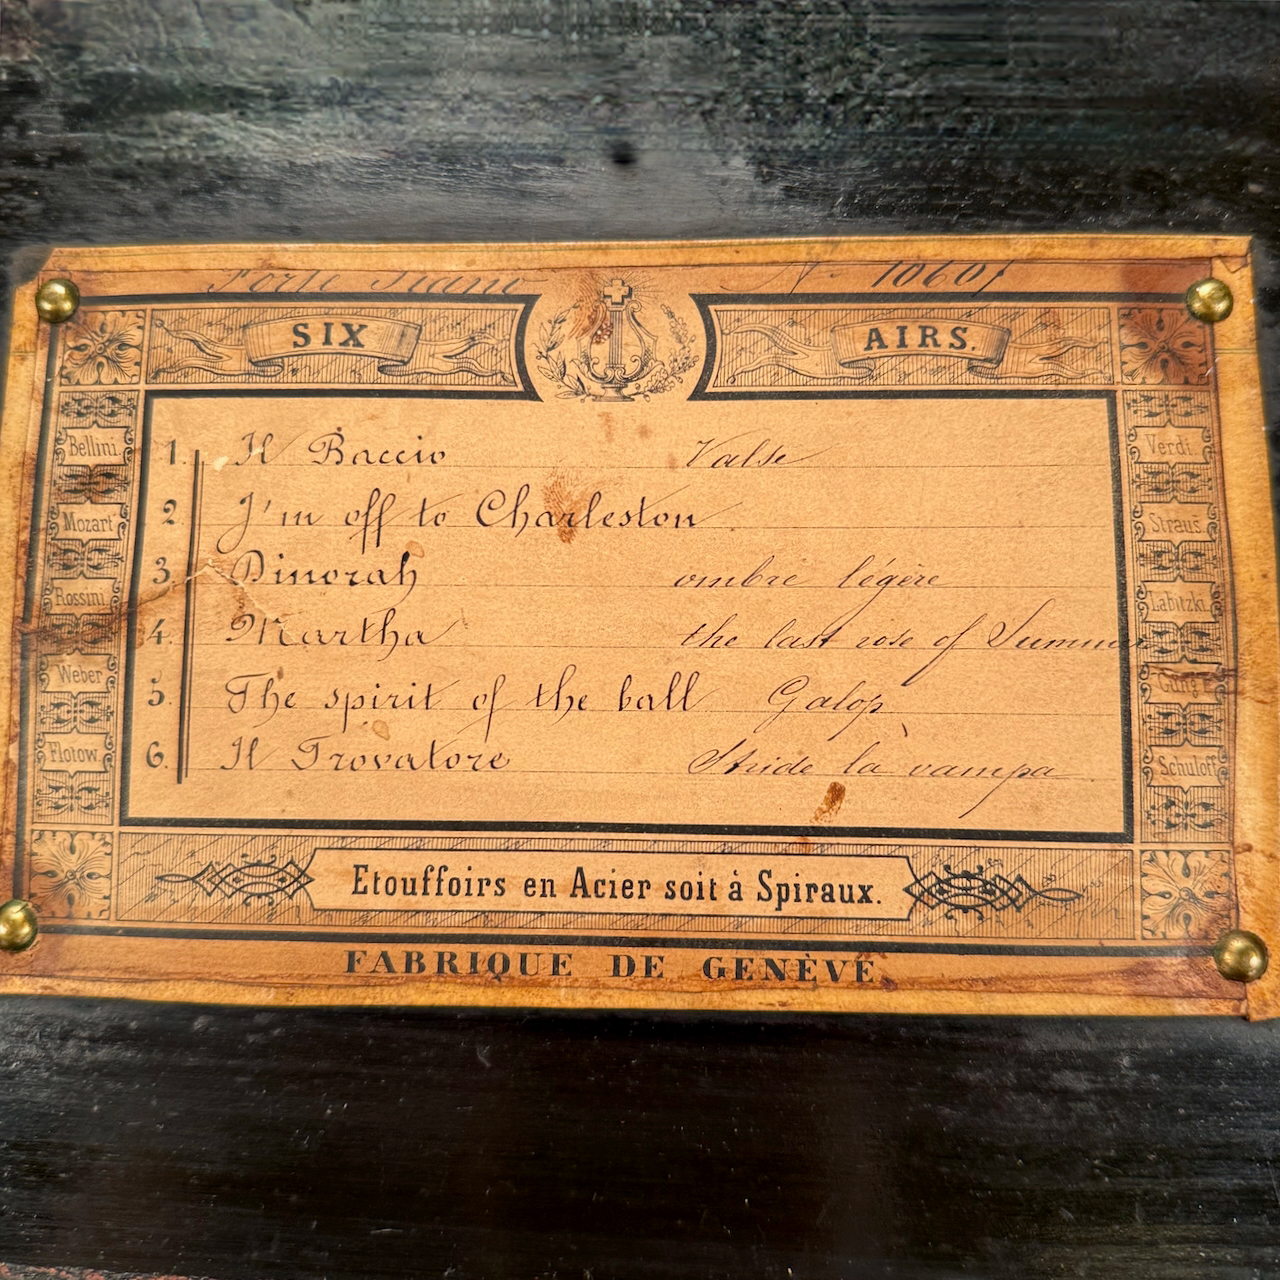 Forte Piano N° 10601
SIX AIRS.
1. Il Baccio Valse
2. J'm off to Charleston
3. Dinorah ombre légère
4. Martha the last rose of Summer
5. The spirit of the ball Galop
6. Il Trovatore Stride là vampa
Bellini.
Mozart
Rossini.
Weber
Flotow.
Verdi.
Straus.
Labitzki.
Gung'l
Schuloff
Etouffoirs en Acier soit à Spiraux.
FABRIQUE DE GENÈVE.